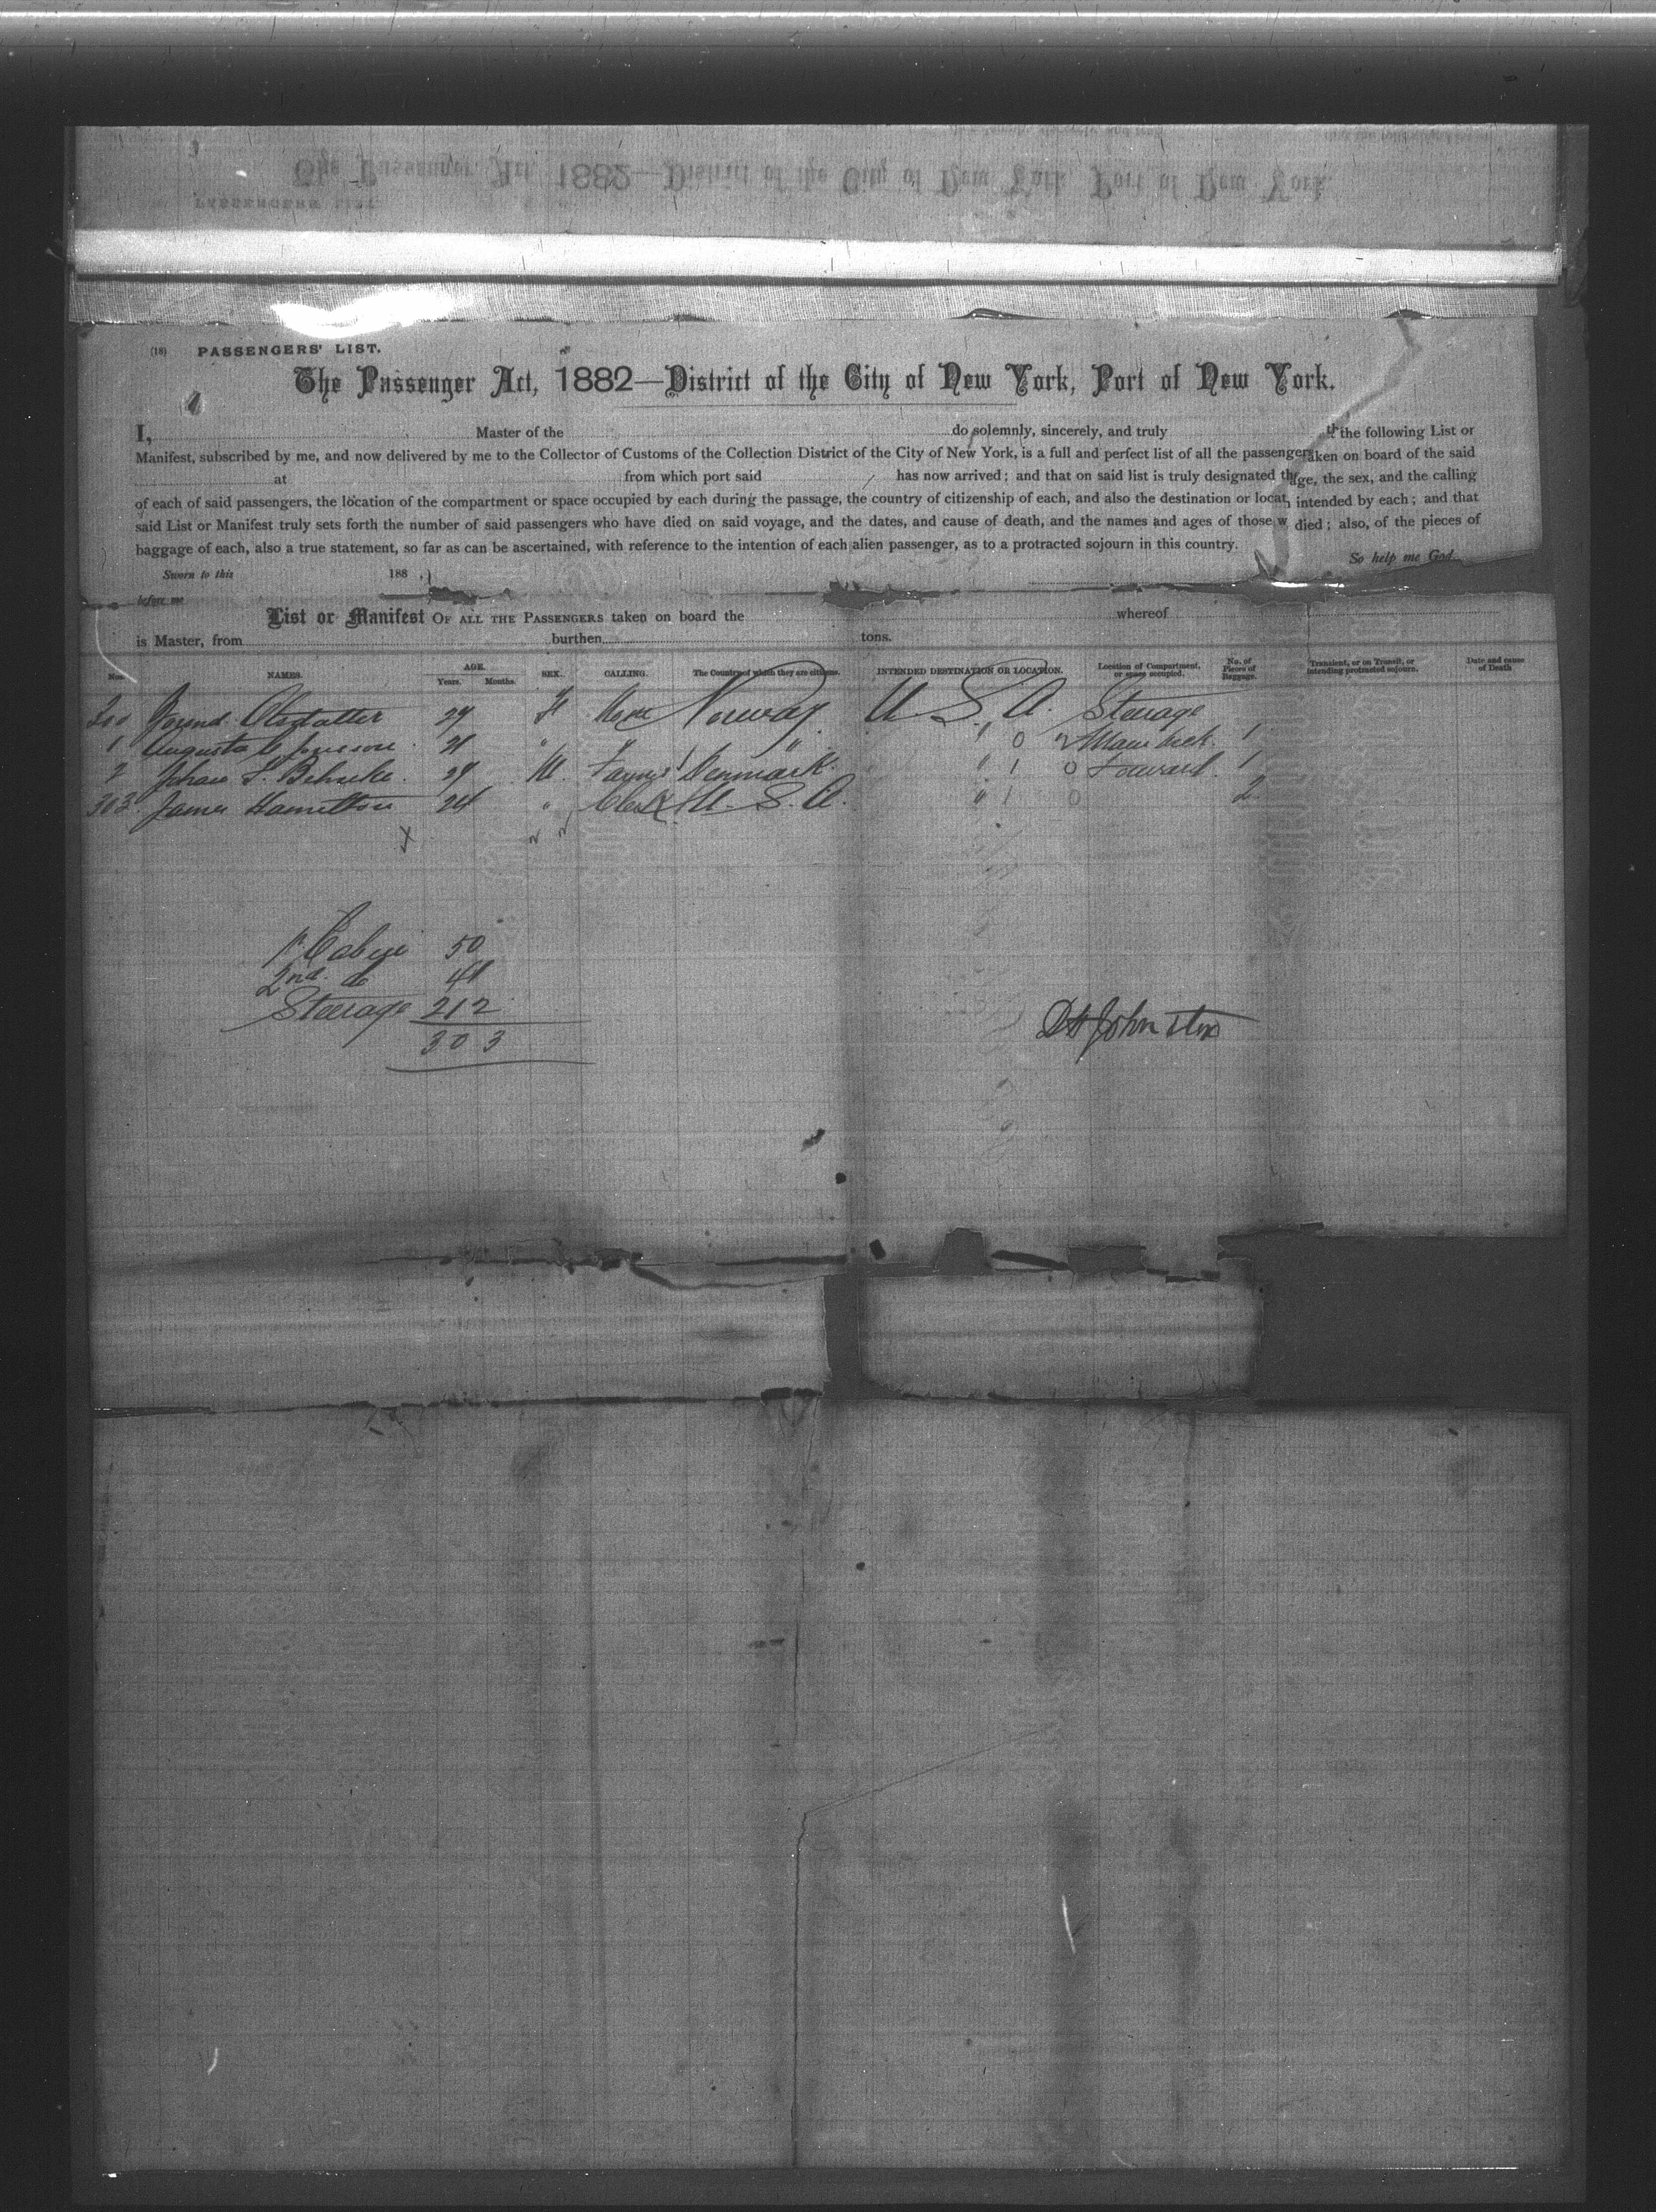 (18) PASSENGERS' LIST.
The Passenger Act, 1882—District of the City of New York, Port of New York.
I, Master of the do solemnly, sincerely, and truly the following List or
Manifest, subscribed by me, and now delivered by me to the Collector of Customs of the Collection District of the City of New York, is a full and perfect list of all the passengers taken on board of the said
at from which port said has now arrived; and that on said list is truly designated the age, the sex, and the calling
of each of said passengers, the location of the compartment or space occupied by each during the passage, the country of citizenship of each, and also the destination or locat intended by each; and that
said List or Manifest truly sets forth the number of said passengers who have died on said voyage, and the dates, and cause of death, and the names and ages of those w died; also, of the pieces of
baggage of each, also a true statement, so far as can be ascertained, with reference to the intention of each alien passenger, as to a protracted sojourn in this country.
So help me God
Sworn to this 188
before me
List or Manifest OF ALL THE PASSENGERS taken on board the whereof
is Master, from burthen tons.
Nos. NAMES. AGE. Years. Months. SEX. CALLING. The Country of which they are citizens. INTENDED DESTINATION OR LOCATION. Location of Compartment, or space occupied. No. of Pieces of Baggage. Transient, or on Transit, or intending protracted sojourn. Date and cause of Death
300 Olsdatter 29 F None Norway U. S. A. Steerage
1 Augusta 21 " " " " 0 Main Deck 1
2 Johan 29 M. Denmark " 1 0 Forward. 1
303 James Hamilton 24 " Clerk U. S. A. " 1 0 2
1st Cabin 50
2nd do 41
Steerage 212
303
Johnston